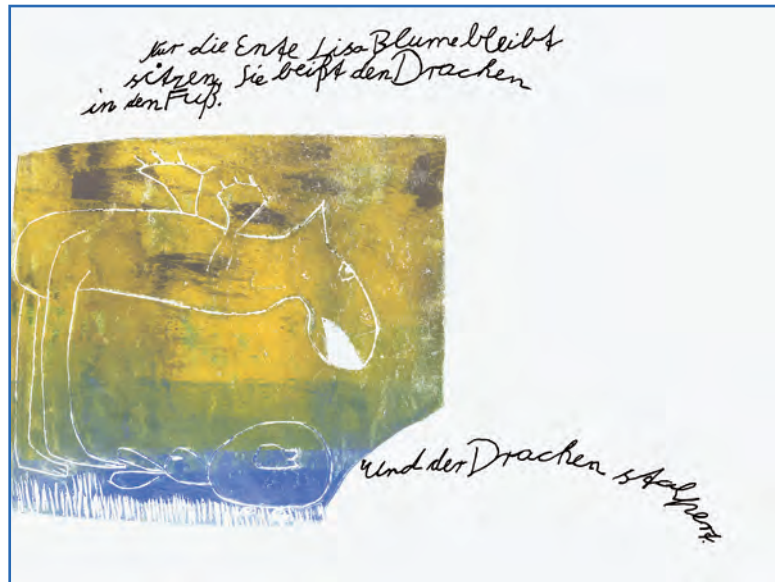 Nur die Ente Lisa Blume bleibt
sitzen. Sie beißt den Drachen
in den Fuß.
Und der Drachen stolpert.